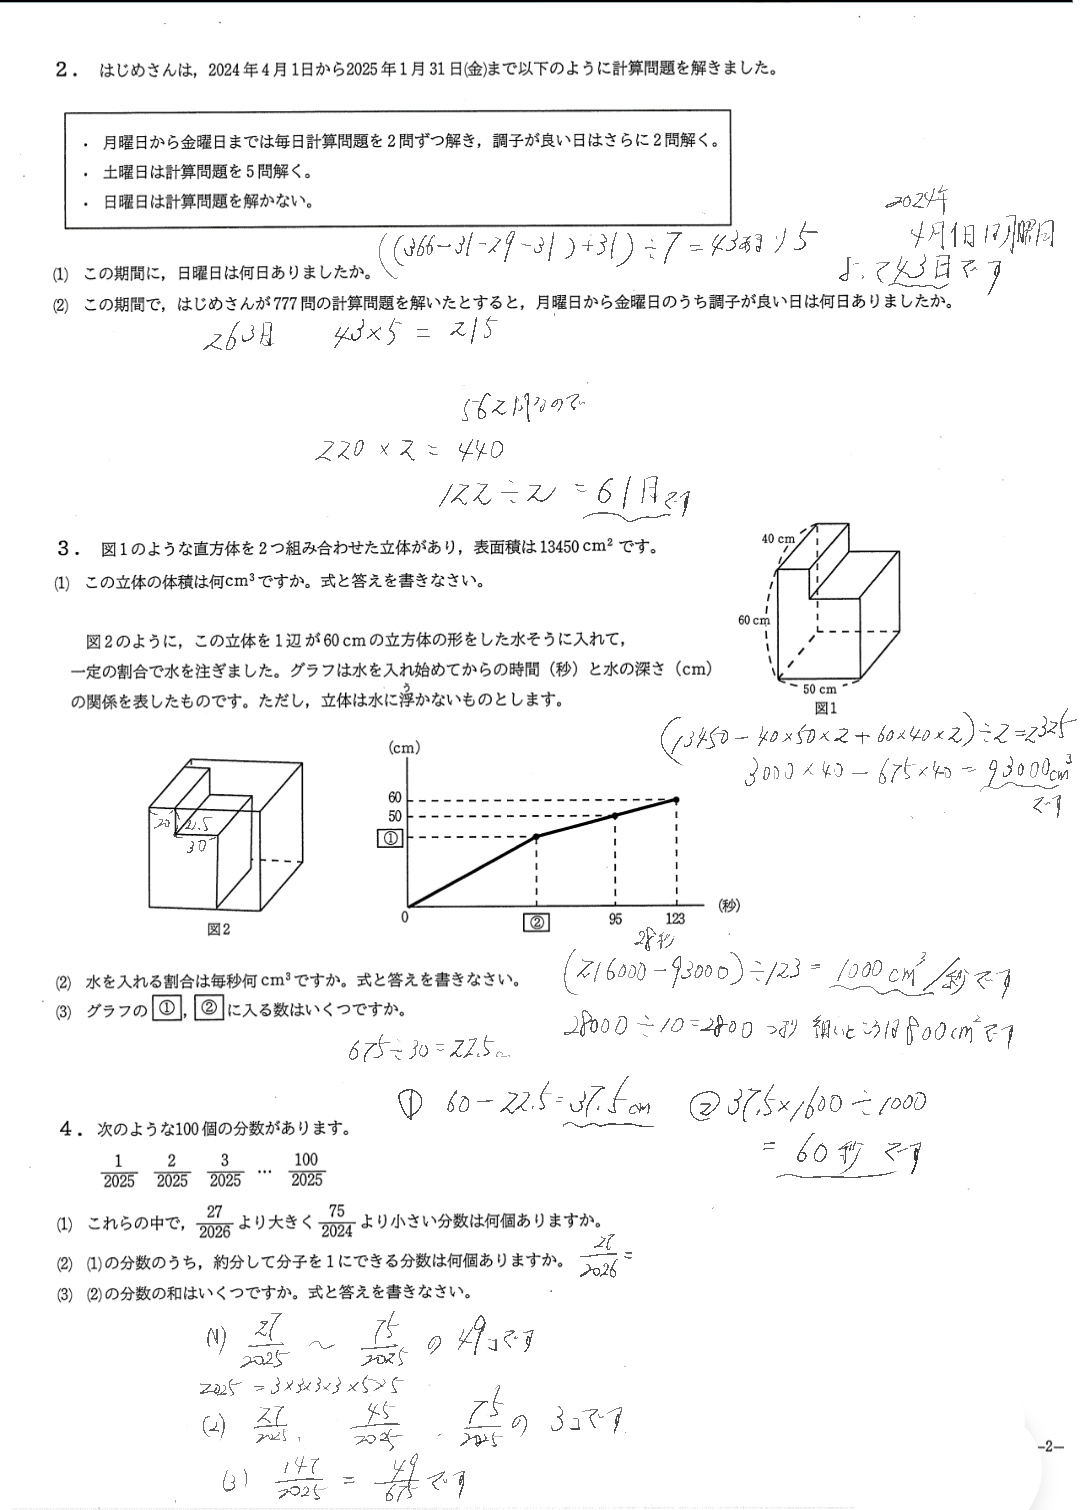 2． はじめさんは，2024年4月1日から2025年1月31日(金)まで以下のように計算問題を解きました。
・ 月曜日から金曜日までは毎日計算問題を2問ずつ解き，調子が良い日はさらに2問解く。
・ 土曜日は計算問題を5問解く。
・ 日曜日は計算問題を解かない。
2024年
4月1日は月曜日
((366-31-29-31)+31)÷7=43あまり5
よって43日です
(1) この期間に，日曜日は何日ありましたか。
(2) この期間で，はじめさんが777問の計算問題を解いたとすると，月曜日から金曜日のうち調子が良い日は何日ありましたか。
263日 43×5 = 215
562問なので
220×2= 440
122÷2 =61日です
3． 図1のような直方体を2つ組み合わせた立体があり，表面積は13450cm²です。
(1) この立体の体積は何cm³ですか。式と答えを書きなさい。
40 cm
60 cm
50 cm
図1
図2のように，この立体を1辺が60cmの立方体の形をした水そうに入れて，
一定の割合で水を注ぎました。グラフは水を入れ始めてからの時間（秒）と水の深さ（cm）
の関係を表したものです。ただし，立体は水に浮かないものとします。
う
(13450-40×50×2+60×40×2)÷2=2325
3000×40-675×40=93000cm³
です
20 22.5
30
図2
(cm)
60
50
①
0 ② 95 123 (秒)
28秒
(2) 水を入れる割合は毎秒何cm³ですか。式と答えを書きなさい。
(216000-93000)÷123=1000cm³/秒です
(3) グラフの ①，② に入る数はいくつですか。
28000÷10=2800 つまり 細いところは800cm²です
675÷30=22.5cm
① 60-22.5=37.5cm ②37.5×1600÷1000
= 60秒です
4． 次のような100個の分数があります。
1/2025 2/2025 3/2025 … 100/2025
(1) これらの中で，27/2026より大きく75/2024より小さい分数は何個ありますか。
(2) (1)の分数のうち，約分して分子を1にできる分数は何個ありますか。
27/2026=
(3) (2)の分数の和はいくつですか。式と答えを書きなさい。
(1) 27/2025 ～ 75/2025 の 49コです
2025 =3×3×3×3×5×5
(2) 27/2025, 45/2025, 75/2025 の 3コです
(3) 147/2025 = 49/675 です
-2-